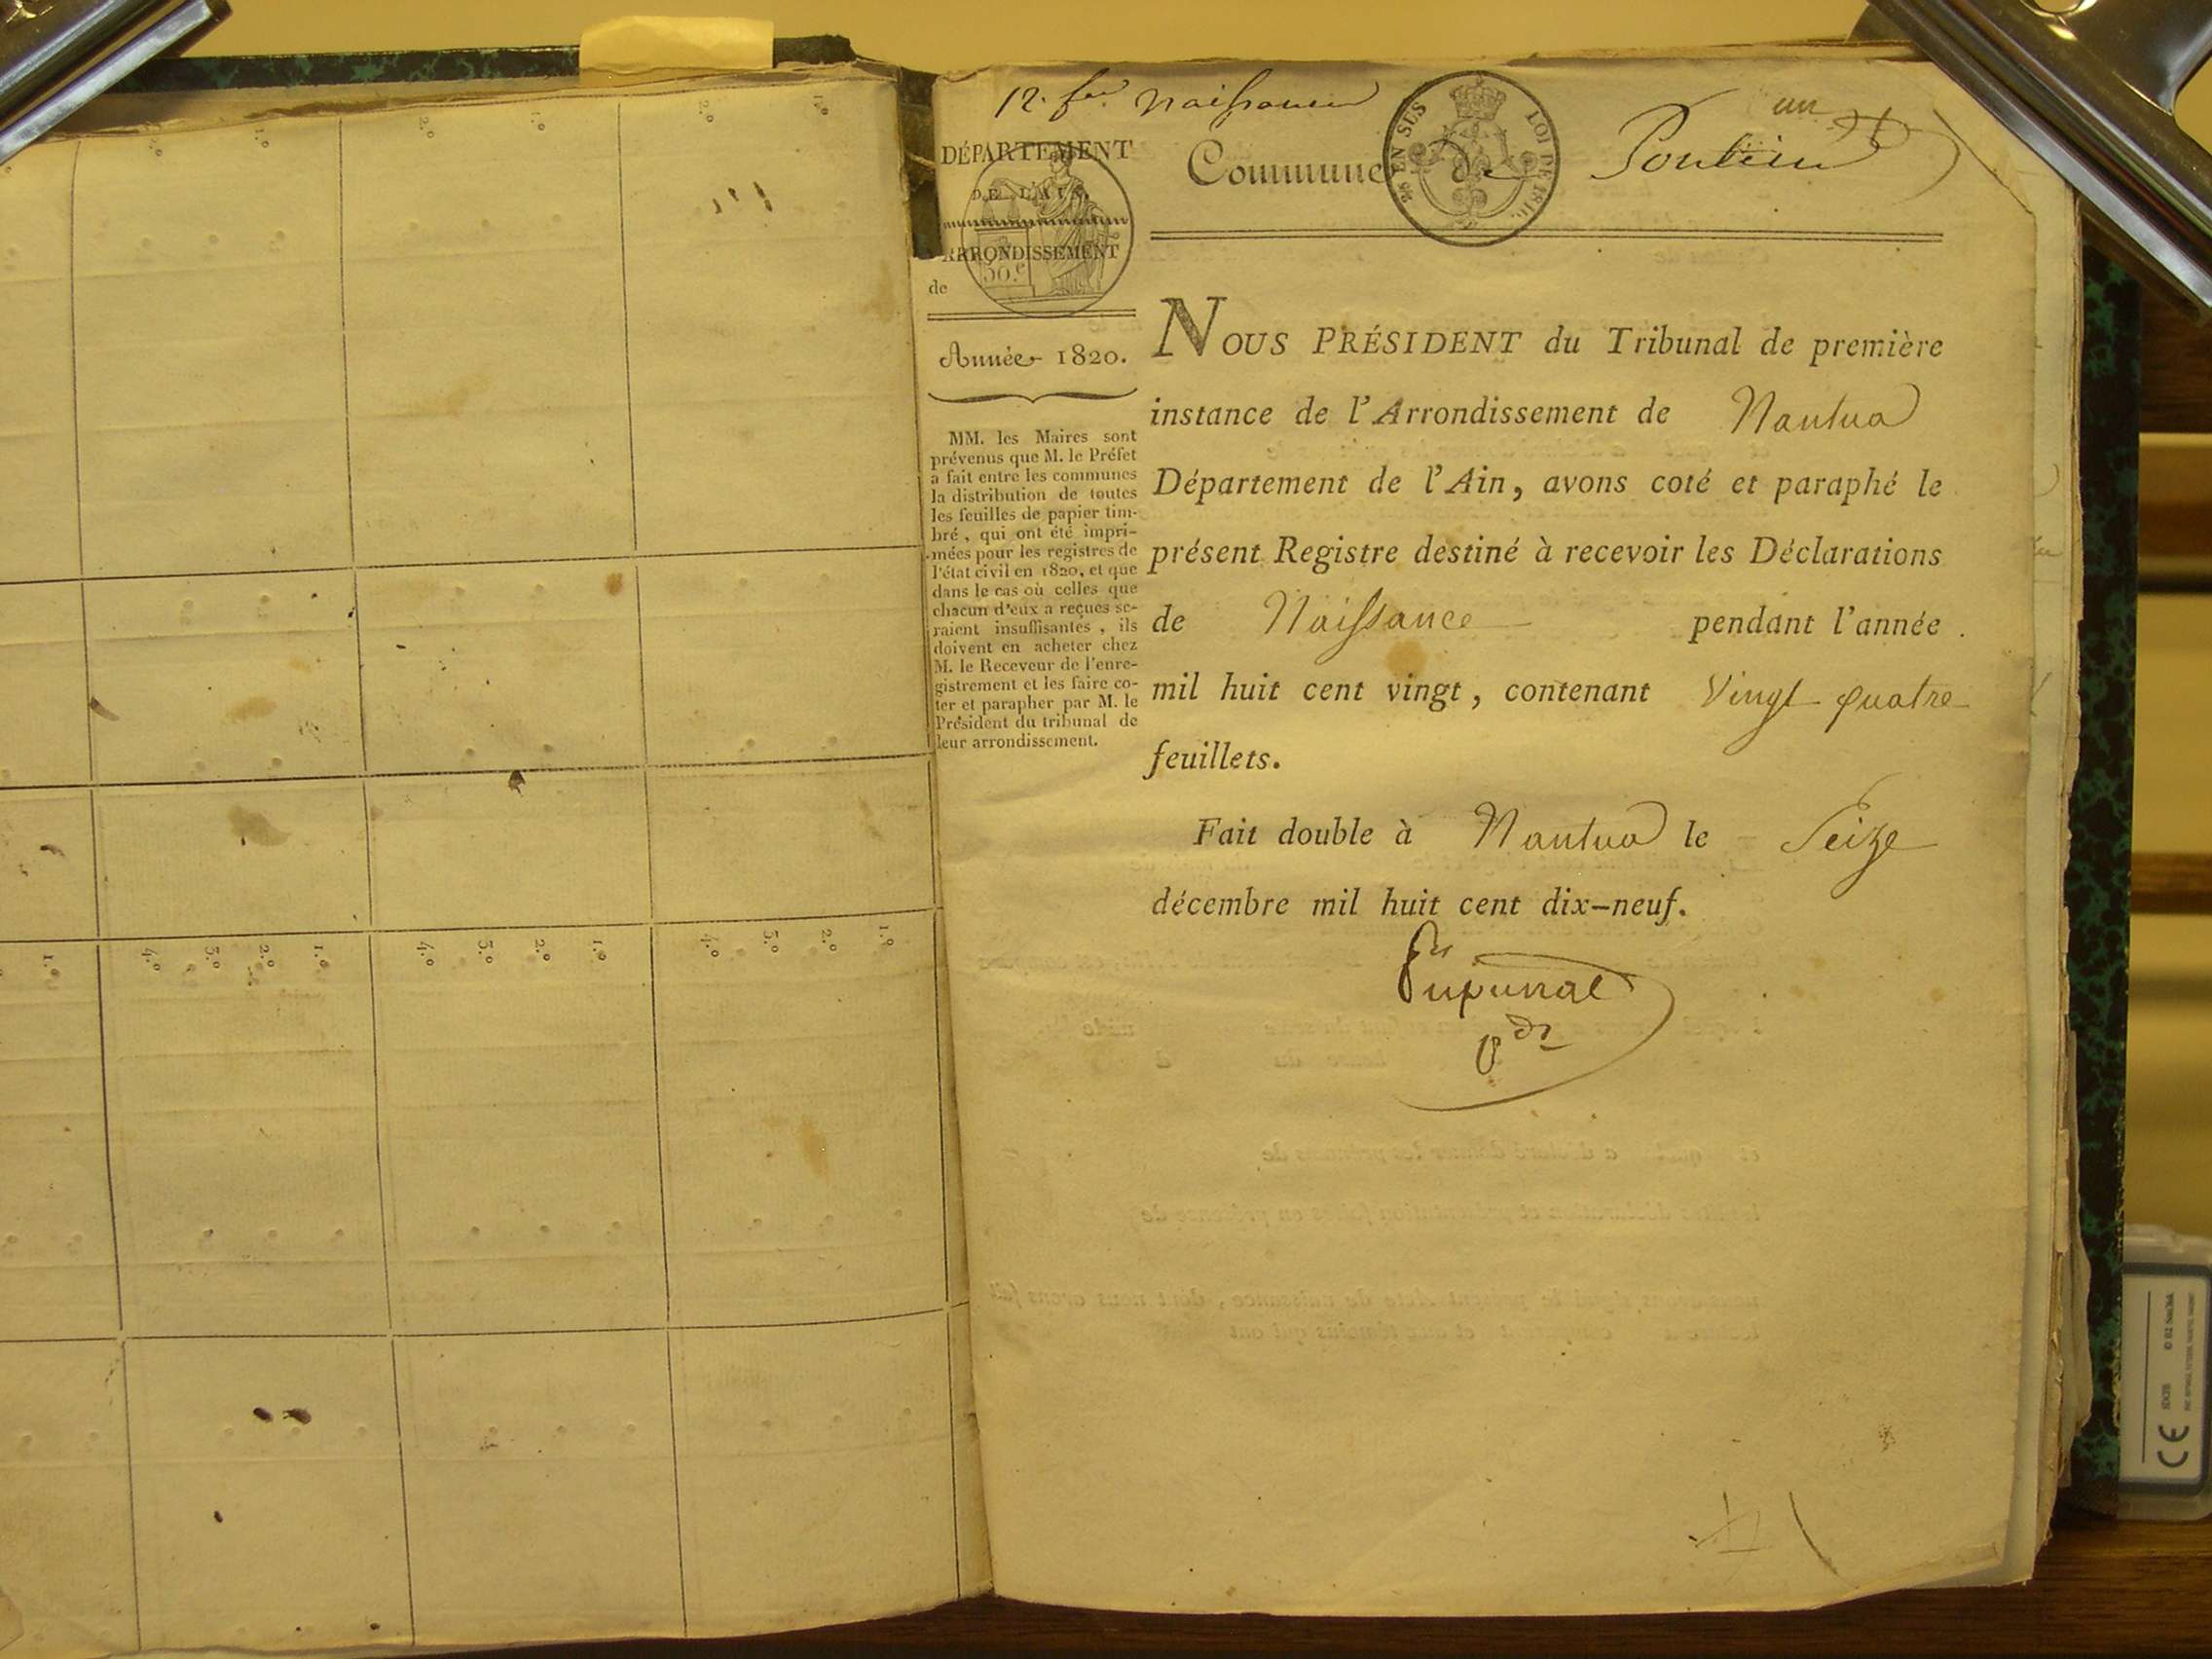 1.º
2.º
1.º
2.º
1.º
2.º
1.º
2.º
3.º
4.º
1.º
2.º
3.º
4.º
1.º
2.º
3.º
4.º
1.º
12. Naissances
un
DÉPARTEMENT
DE L'AIN
ARRONDISSEMENT
de
50.c
EN SUS
LOI DE 1816.
Commune de Poncin
Année 1820.
MM. les Maires sont
prévenus que M. le Préfet
a fait entre les communes
la distribution de toutes
les feuilles de papier tim-
bré, qui ont été impri-
mées pour les registres de
l'état civil en 1820, et que
dans le cas où celles que
chacun d'eux a reçues se-
raient insuffisantes, ils
doivent en acheter chez
M. le Receveur de l'enre-
gistrement et les faire co-
ter et parapher par M. le
Président du tribunal de
leur arrondissement.
NOUS PRÉSIDENT du Tribunal de première
instance de l'Arrondissement de Nantua
Département de l'Ain, avons coté et paraphé le
présent Registre destiné à recevoir les Déclarations
de Naissance pendant l'année
mil huit cent vingt, contenant Vingt quatre
feuillets.
Fait double à Nantua le Seize
décembre mil huit cent dix-neuf.
CE
SDCFB
© 02 SanDisk